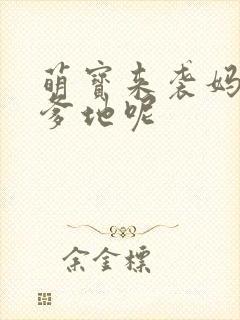 萌宝来袭妈
爹地呢
余金標